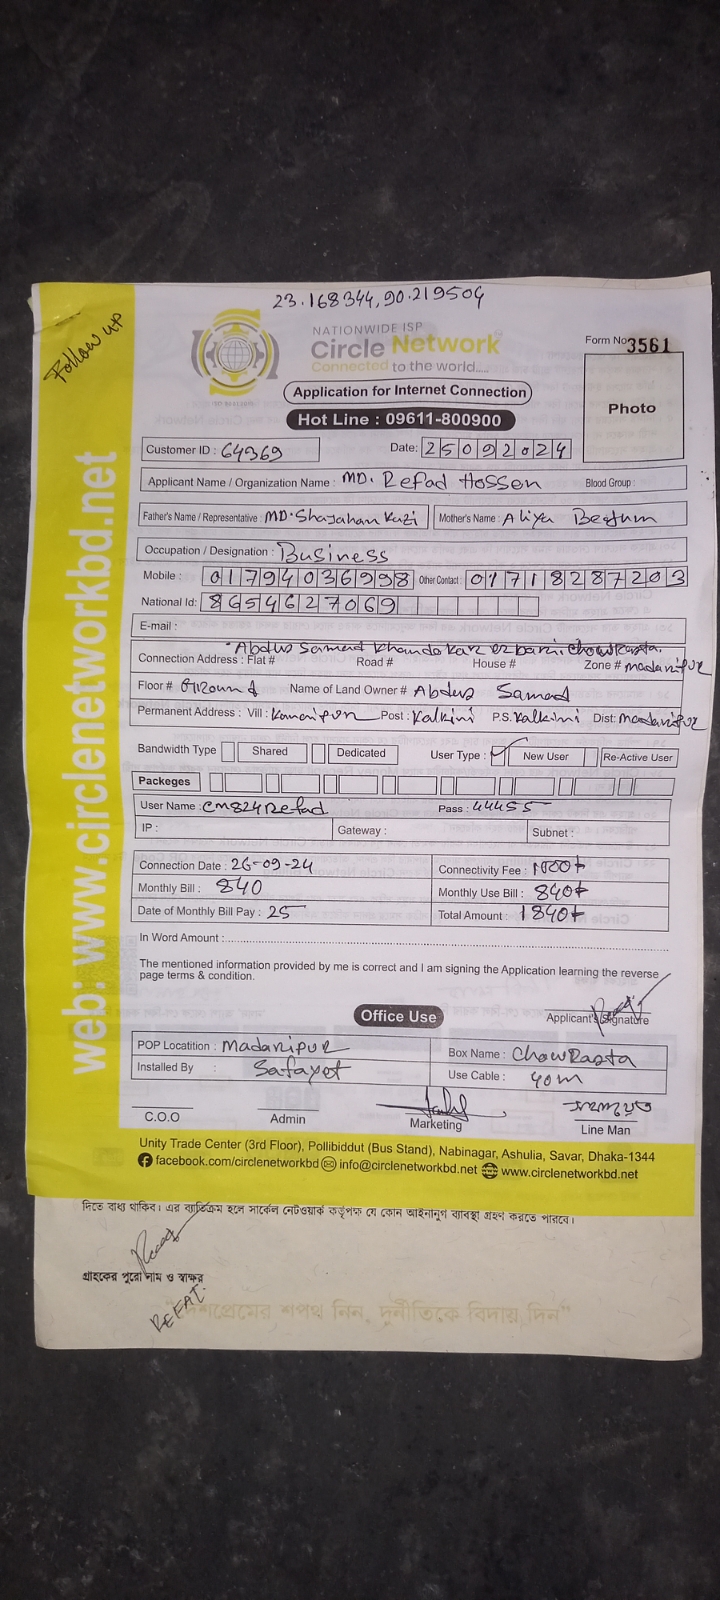 23.168344, 90.219504
Follow up
NATIONWIDE ISP
Circle Network
Connected to the world.....
Form No 3561
Application for Internet Connection
Hot Line : 09611-800900
Photo
Customer ID : 64369
Date: 25092024
Applicant Name / Organization Name : MD. Refad Hossen Blood Group :
Father's Name / Representative : MD. Shajahan Kazi Mother's Name : Aliya Begum
Occupation / Designation : Business
Mobile : 01794036998 Other Contact : 01718287203
National Id: 8654627069
E-mail :
Abdus Samad Khandakar er bari, ChowRasta.
Connection Address : Flat # Road # House # Zone # Madaripur
Floor # Ground Name of Land Owner # Abdus Samad
Permanent Address : Vill : Post : Kalkini P.S. Kalkini Dist: Madaripur
Bandwidth Type Shared Dedicated User Type : New User Re-Active User
Packeges
User Name : CM824Refad Pass : 44455
IP : Gateway : Subnet :
Connection Date : 26-09-24 Connectivity Fee : 1000/-
Monthly Bill : 840 Monthly Use Bill : 840/-
Date of Monthly Bill Pay : 25 Total Amount : 1840/-
In Word Amount :
The mentioned information provided by me is correct and I am signing the Application learning the reverse
page terms & condition.
Applicant's Signature
Office Use
POP Locatition : Madaripur Box Name : ChowRasta
Installed By : Safayet Use Cable : 40m
C.O.O Admin Marketing Line Man
Unity Trade Center (3rd Floor), Pollibiddut (Bus Stand), Nabinagar, Ashulia, Savar, Dhaka-1344
facebook.com/circlenetworkbd info@circlenetworkbd.net www.circlenetworkbd.net
web: www.circlenetworkbd.net
দিতে বাধ্য থাকিব। এর ব্যতিক্রম হলে সার্কেল নেটওয়ার্ক কর্তৃপক্ষ যে কোন আইনানুগ ব্যাবস্থা গ্রহণ করতে পারবে।
গ্রাহকের পুরো নাম ও স্বাক্ষর
REFAT
"দেশপ্রেমের শপথ নিন, দুর্নীতিকে বিদায় দিন"